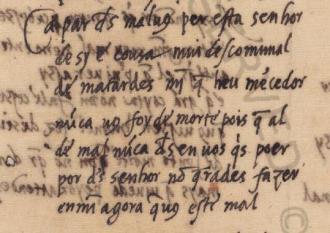 A par ds̃ mal ug̃ per esta senhor
desy e cousa mui descomunal
de matardes mj̃ q̃ heu mecedor
nũca uo9 foy de morte pois q̃ al
de mal nũca ds̃ en uos q̃s poer
por ds̃ senhor nõ q̃rades fazer
en mĩ agora q̃uo este mal